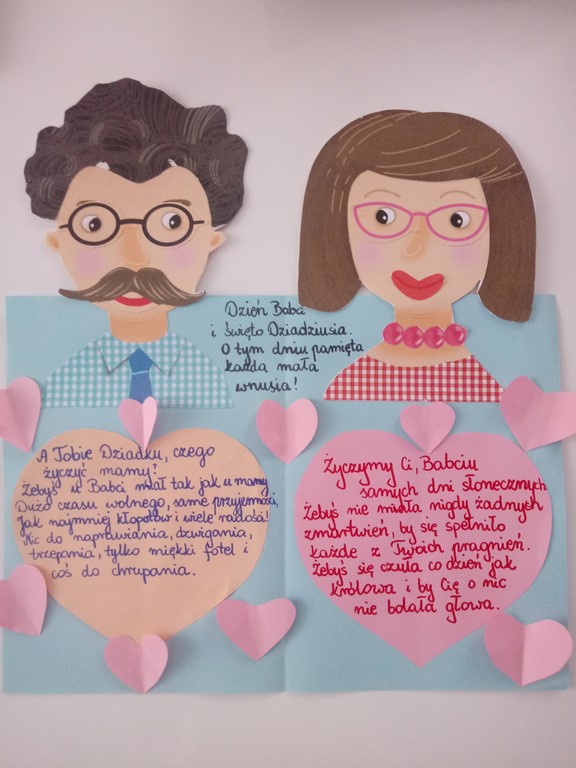 Dzień Babci
i święto Dziadziusia.
O tym dniu pamięta
każda mała
wnusia!
A Tobie Dziadku, czego
życzyć mamy?
Żebyś u Babci miał tak jak u mamy
Dużo czasu wolnego, same przyjemności,
Jak najmniej kłopotów i wiele radości!
Nic do naprawiania, dźwigania,
trzepania, tylko miękki fotel i
coś do chrupania.
Życzymy Ci, Babciu
samych dni słonecznych
Żebyś nie miała nigdy żadnych
zmartwień, by się spełniło
każde z Twoich pragnień.
Żebyś się czuła co dzień jak
królowa i by Cię o nic
nie bolała głowa.